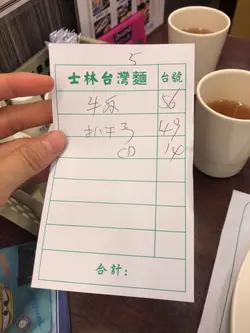 5
士林台灣麵 台號
牛 56
49
CD 14
合計: